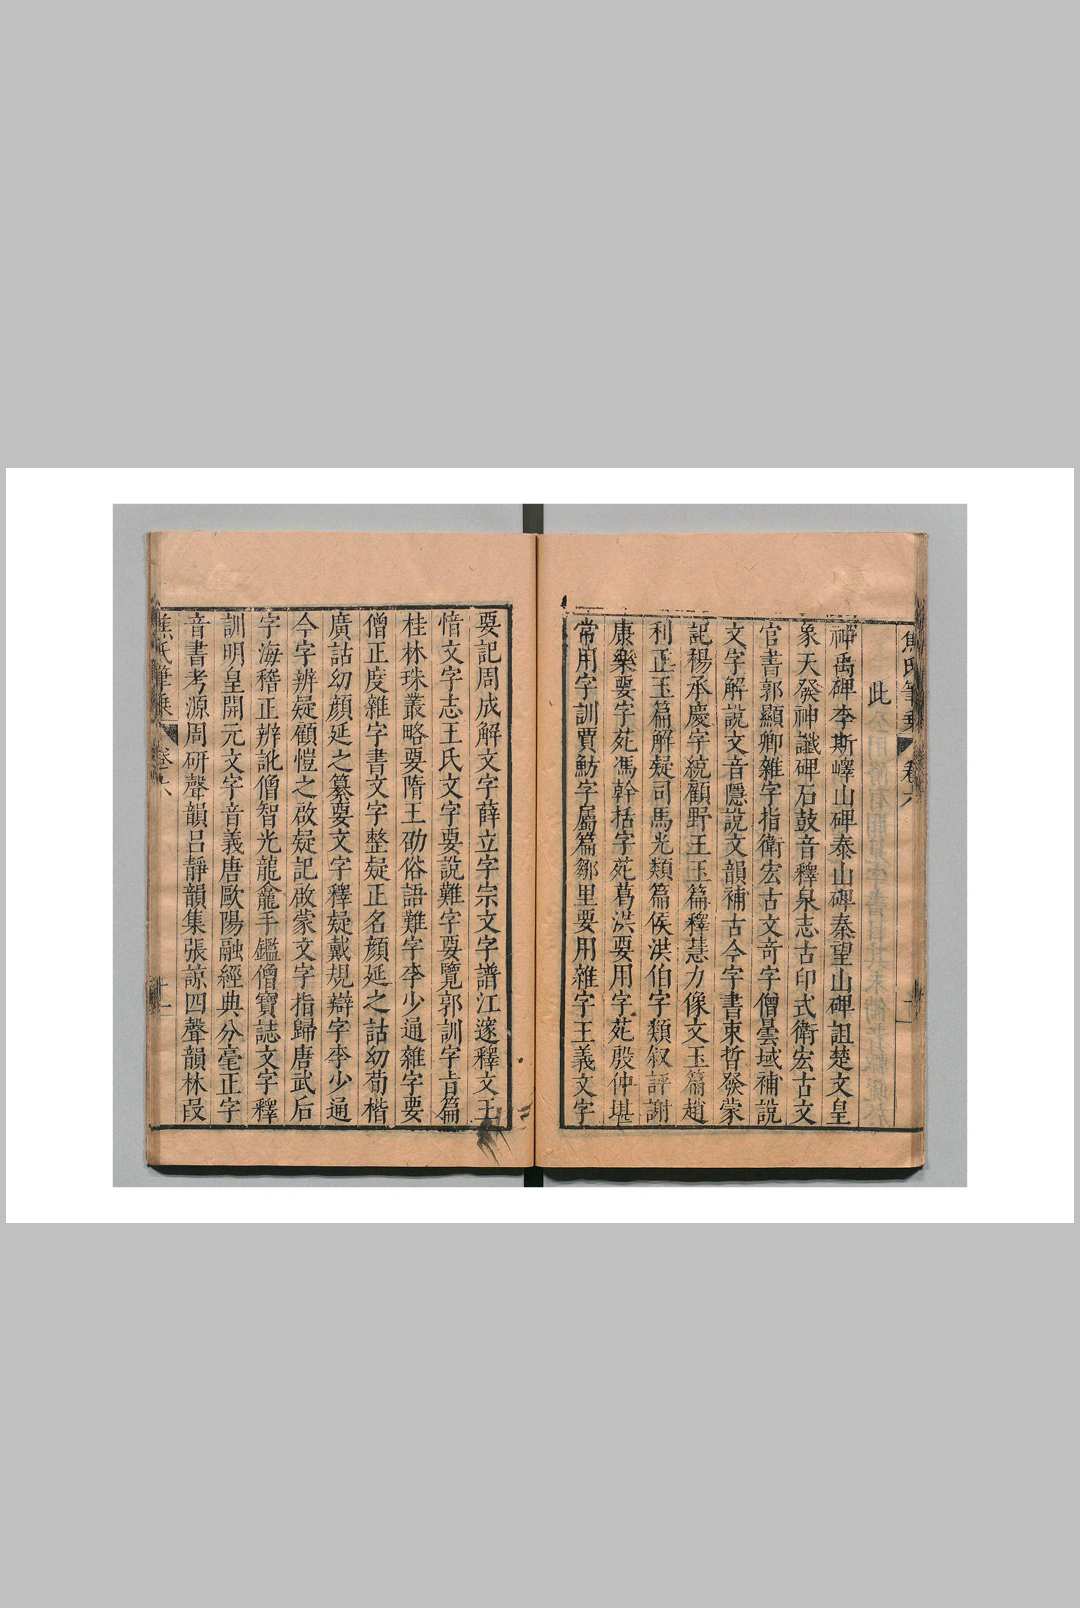 焦氏筆乗 卷六
此
神禹碑李斯嶧山碑泰山碑秦望山碑詛楚文皇
象天發神讖碑石鼓音釋泉志古印式衛宏古文
官書郭顯卿雜字指衛宏古文奇字僧曇域補說
文字解說文音隱說文韻補古今字書束晳發蒙
記楊承慶字統顧野王玉篇釋慧力像文玉篇趙
利正玉篇解疑司馬光類篇侯洪伯字類叙評謝
康樂要字苑馮幹括字苑葛洪要用字苑殷仲堪
常用字訓賈魴字屬篇鄒里要用雜字王義文字
要記周成解文字薛立字宗文字譜江邃釋文王
愔文字志王氏文字要說難字要覽郭訓字旨篇
桂林珠叢略要隋王劭俗語難字李少通雜字要
僧正度雜字書文字整疑正名顏延之詁幼荀楷
廣詁幼顏延之纂要文字釋疑戴規辯字李少通
今字辨疑顧愷之啟疑記啟蒙文字指歸唐武后
字海稽正辨訛僧智光龍龕手鑑僧寶誌文字釋
訓明皇開元文字音義唐歐陽融經典分毫正字
音書考源周研聲韻呂靜韻集張諒四聲韻林叚
焦氏筆乗 卷六 十一